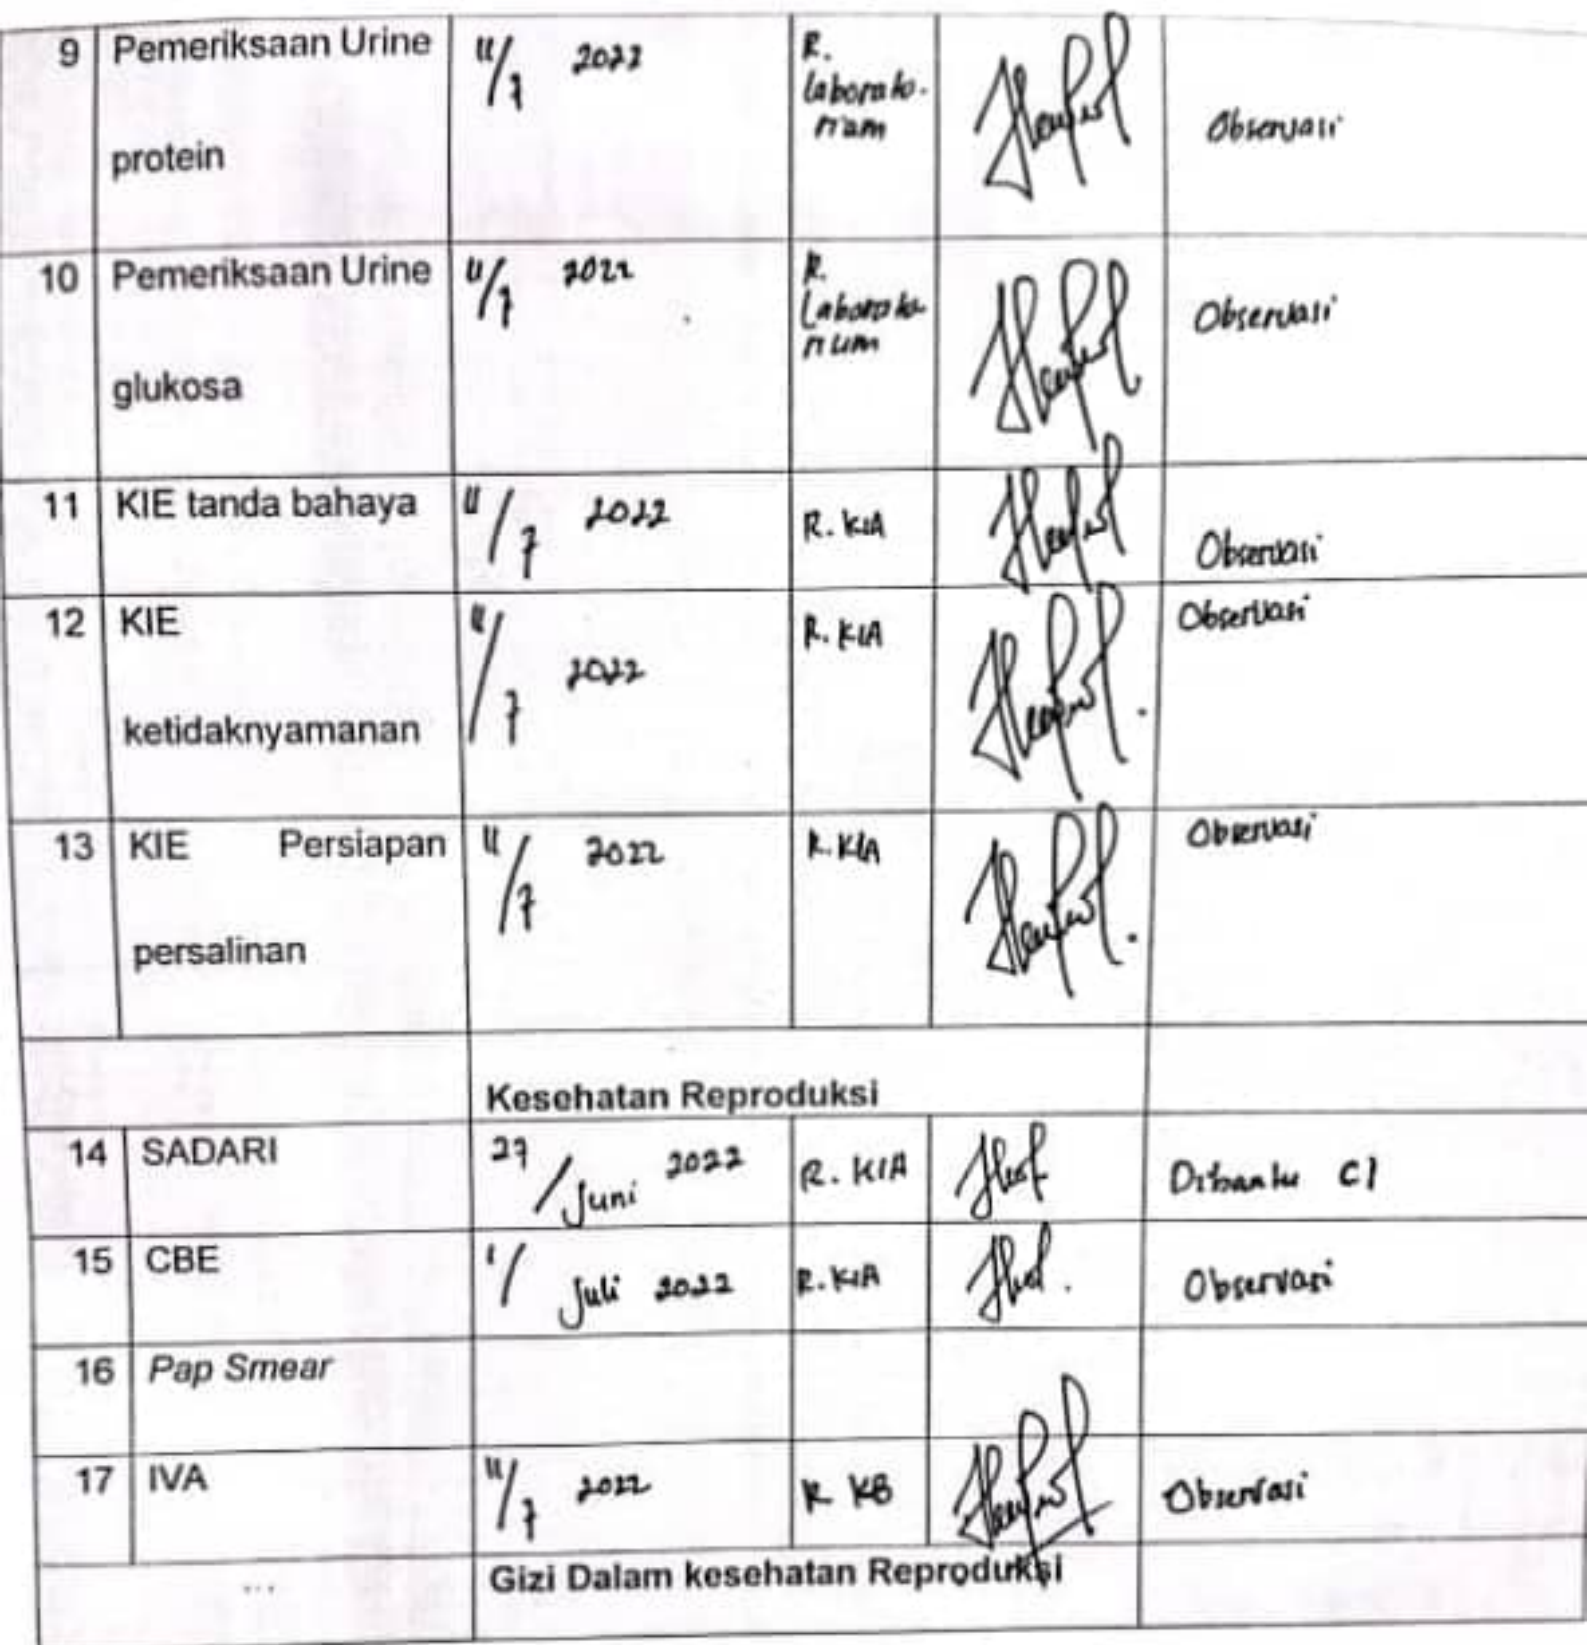 9 Pemeriksaan Urine 11/7 2022 R.
laborato-
rium Observasi
protein
10 Pemeriksaan Urine 11/7 2022 R.
Laborato
rium Observasi
glukosa
11 KIE tanda bahaya 11/7 2022 R. KIA Observasi
12 KIE 11/7 2022 R. KIA Observasi
ketidaknyamanan
13 KIE Persiapan 11/7 2022 R. KIA Observasi
persalinan
Kesehatan Reproduksi
14 SADARI 27/Juni 2022 R. KIA Dibantu CI
15 CBE 1/Juli 2022 R. KIA Observasi
16 Pap Smear
17 IVA 11/7 2022 R KB Observasi
... Gizi Dalam kesehatan Reproduksi